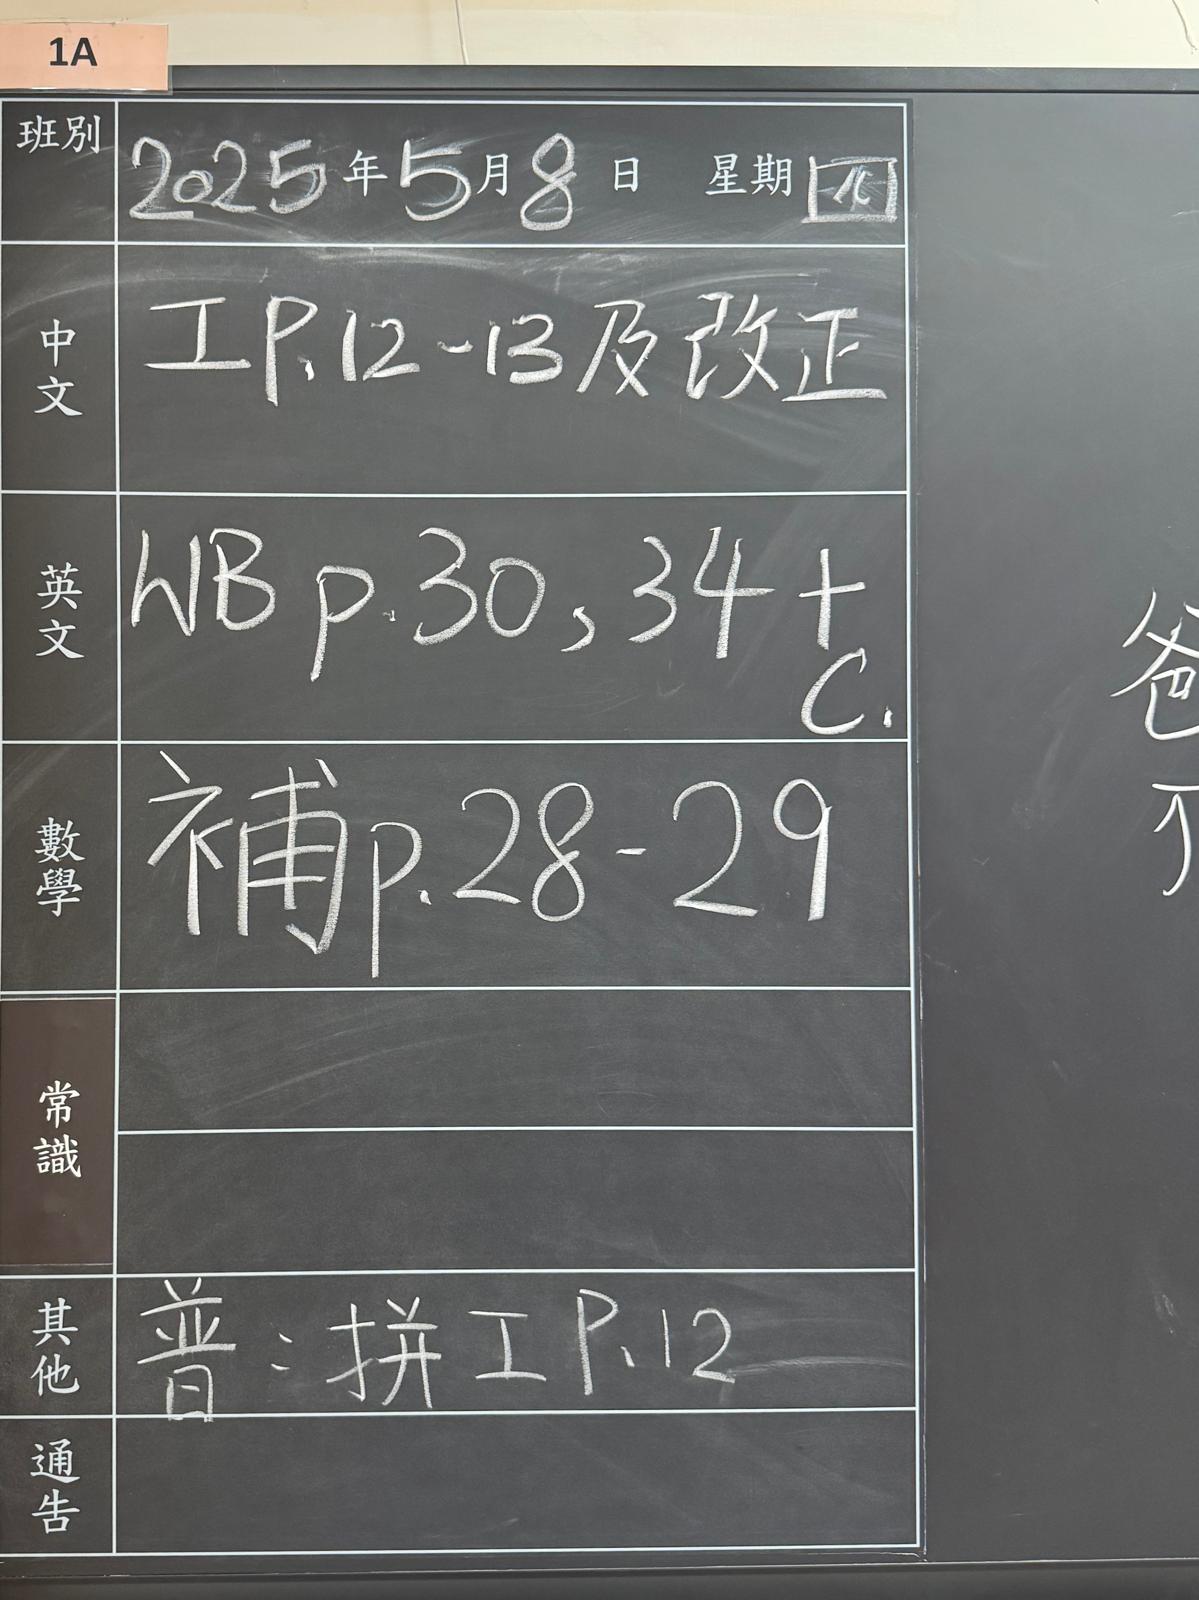 1A
班別
2025年5月8日 星期四
中文
工P.12-13及改正
英文
WB p.30,34+
C.
數學
補p.28-29
常識
其他
普:拼工P.12
通告
爸